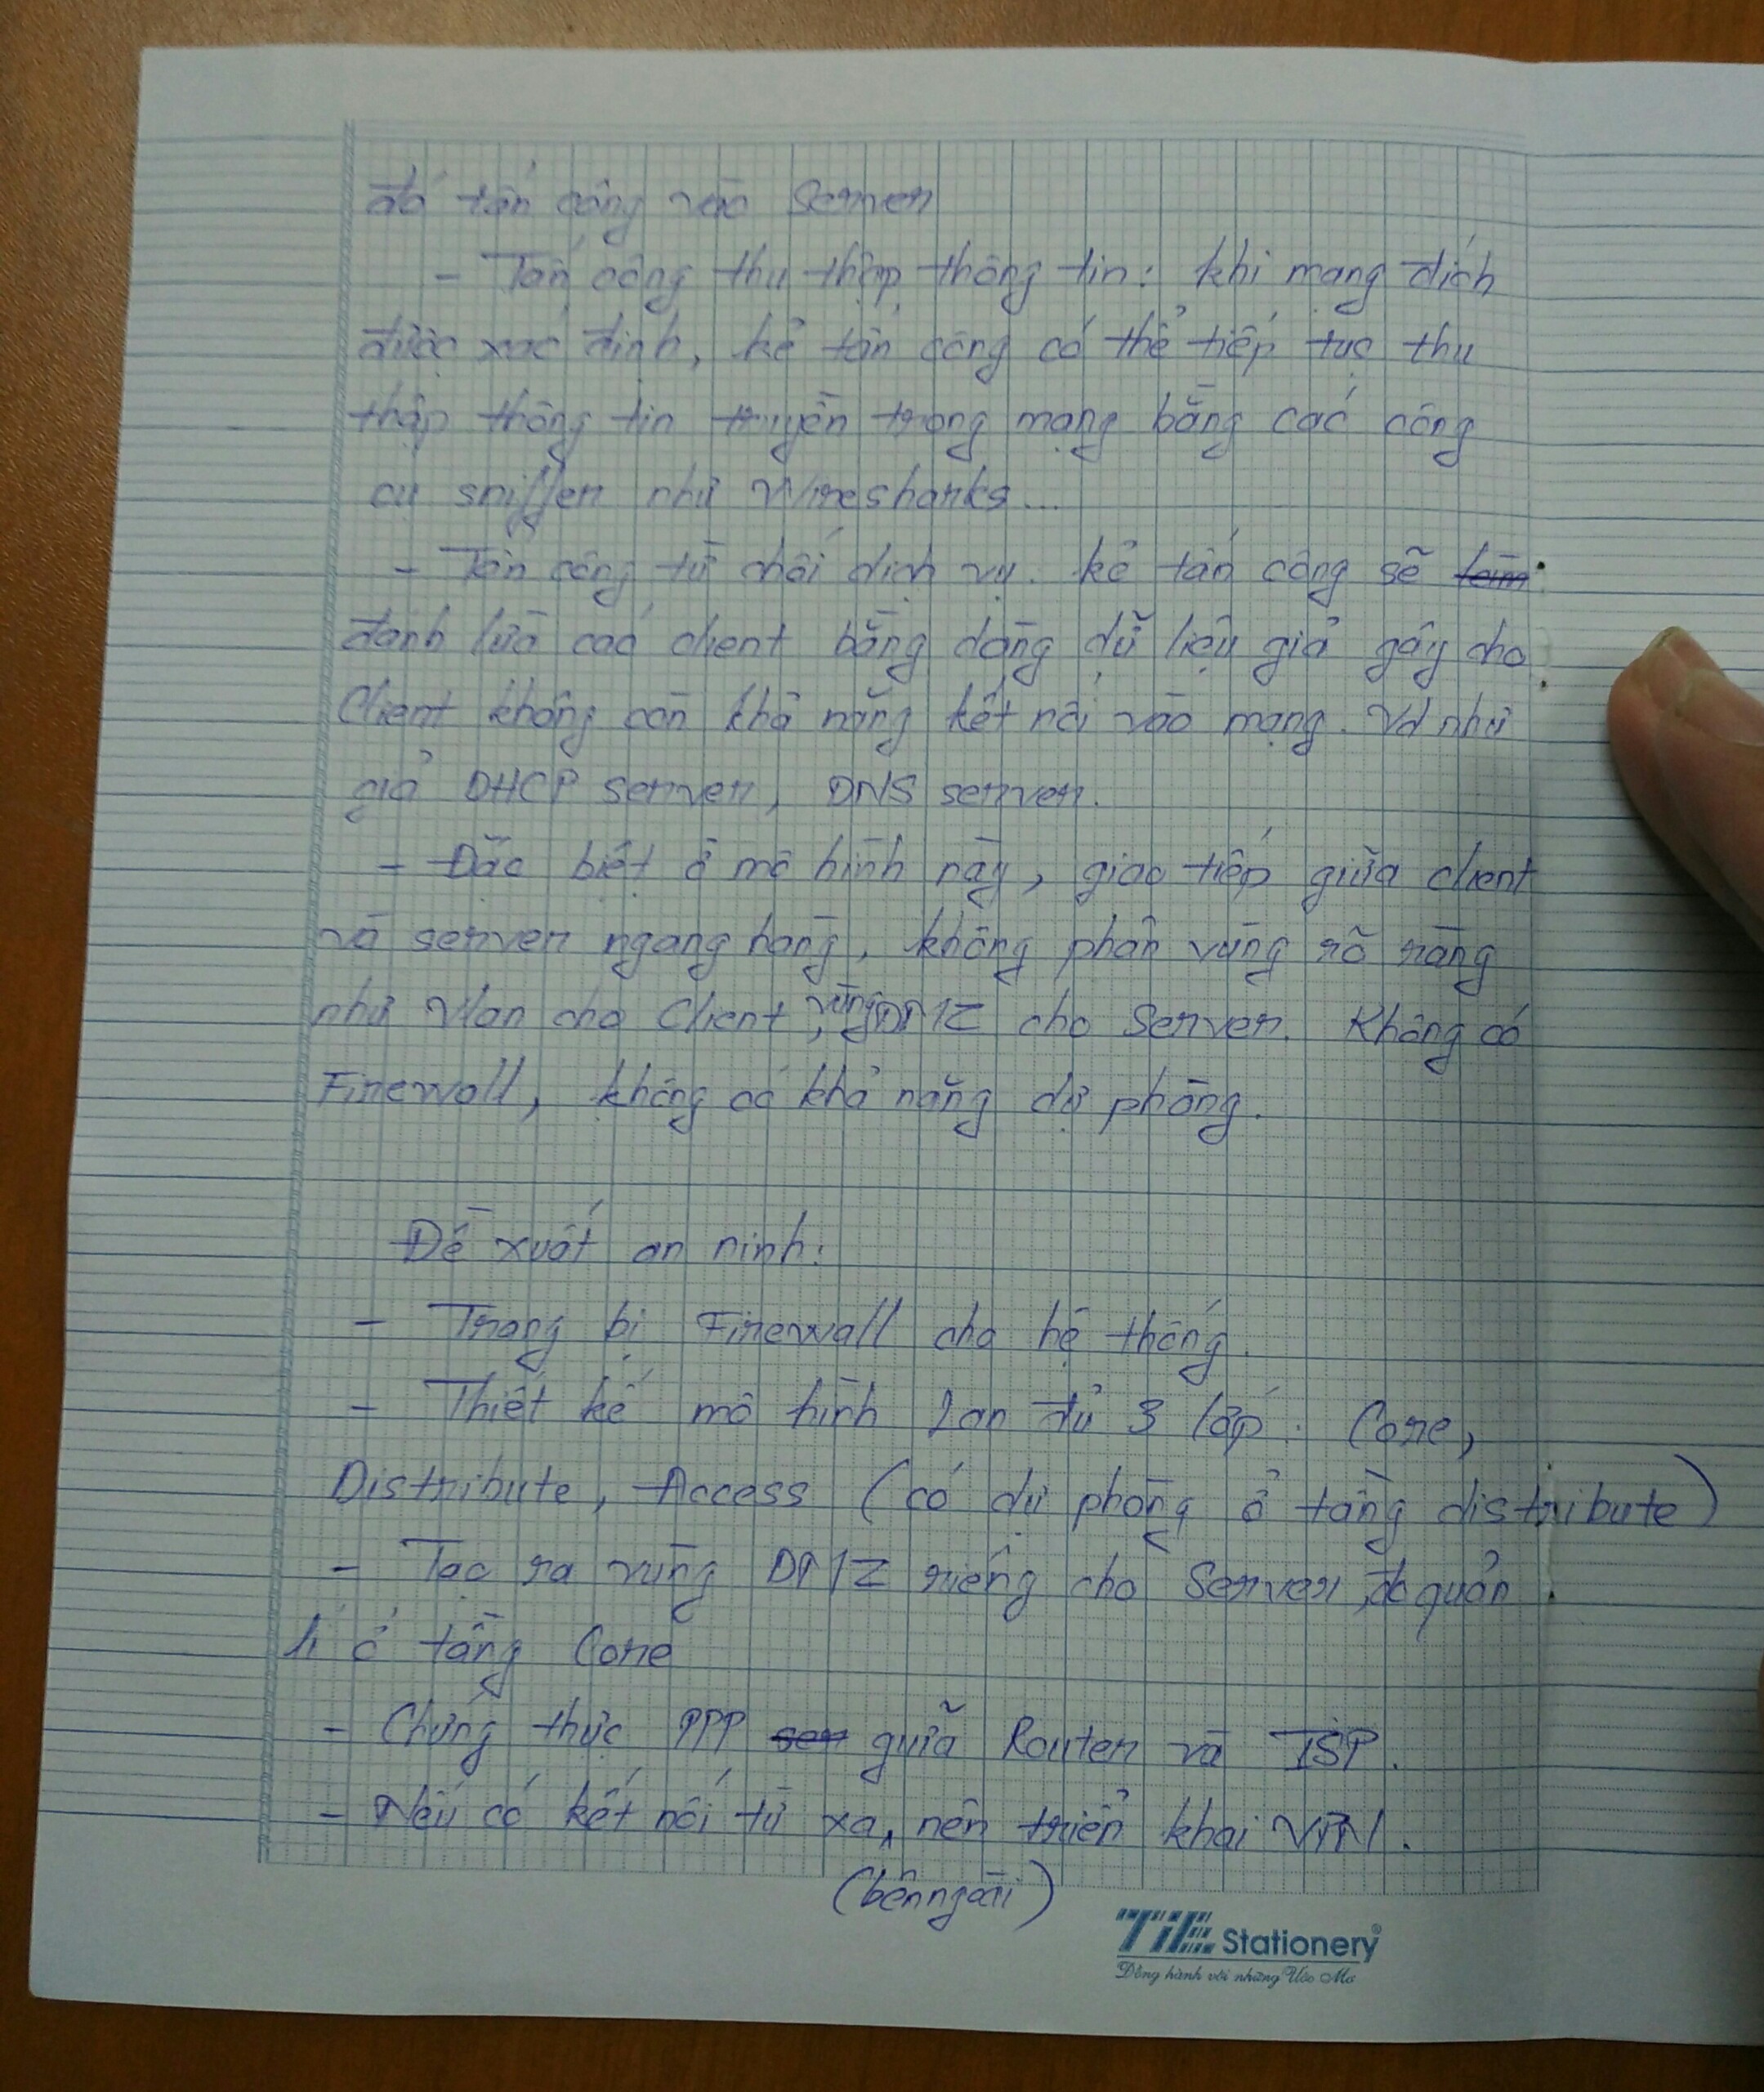 đó tấn công vào Server
- Tấn công thu thập thông tin: khi mạng đích
được xác định, kẻ tấn công có thể tiếp tục thu
thập thông tin truyền trong mạng bằng các công
cụ sniffer như Wiresharks...
- Tấn công từ chối dịch vụ. kẻ tấn công sẽ làm
đánh lừa các client bằng dòng dữ liệu giả gây cho
Client không còn khả năng kết nối vào mạng. Vd như
giả DHCP server, DNS server.
- Đặc biệt ở mô hình này, giao tiếp giữa client
và server ngang hàng, không phân vùng rõ ràng
như Vlan cho Client, vùng DMZ cho Server. Không có
Firewall, không có khả năng dự phòng.
Đề xuất an ninh:
- Trang bị Firewall cho hệ thống.
- Thiết kế mô hình Lan đủ 3 lớp: Core,
Distribute, Access (có dự phòng ở tầng distribute)
- Tạo ra vùng DMZ riêng cho Server, đc quản
lí ở tầng Core
- Chứng thực PPP ser giữa Router và ISP.
- Nếu có kết nối từ xa, nên triển khai VPN.
(bên ngoài)
TiE Stationery®
Đồng hành với những Ước Mơ